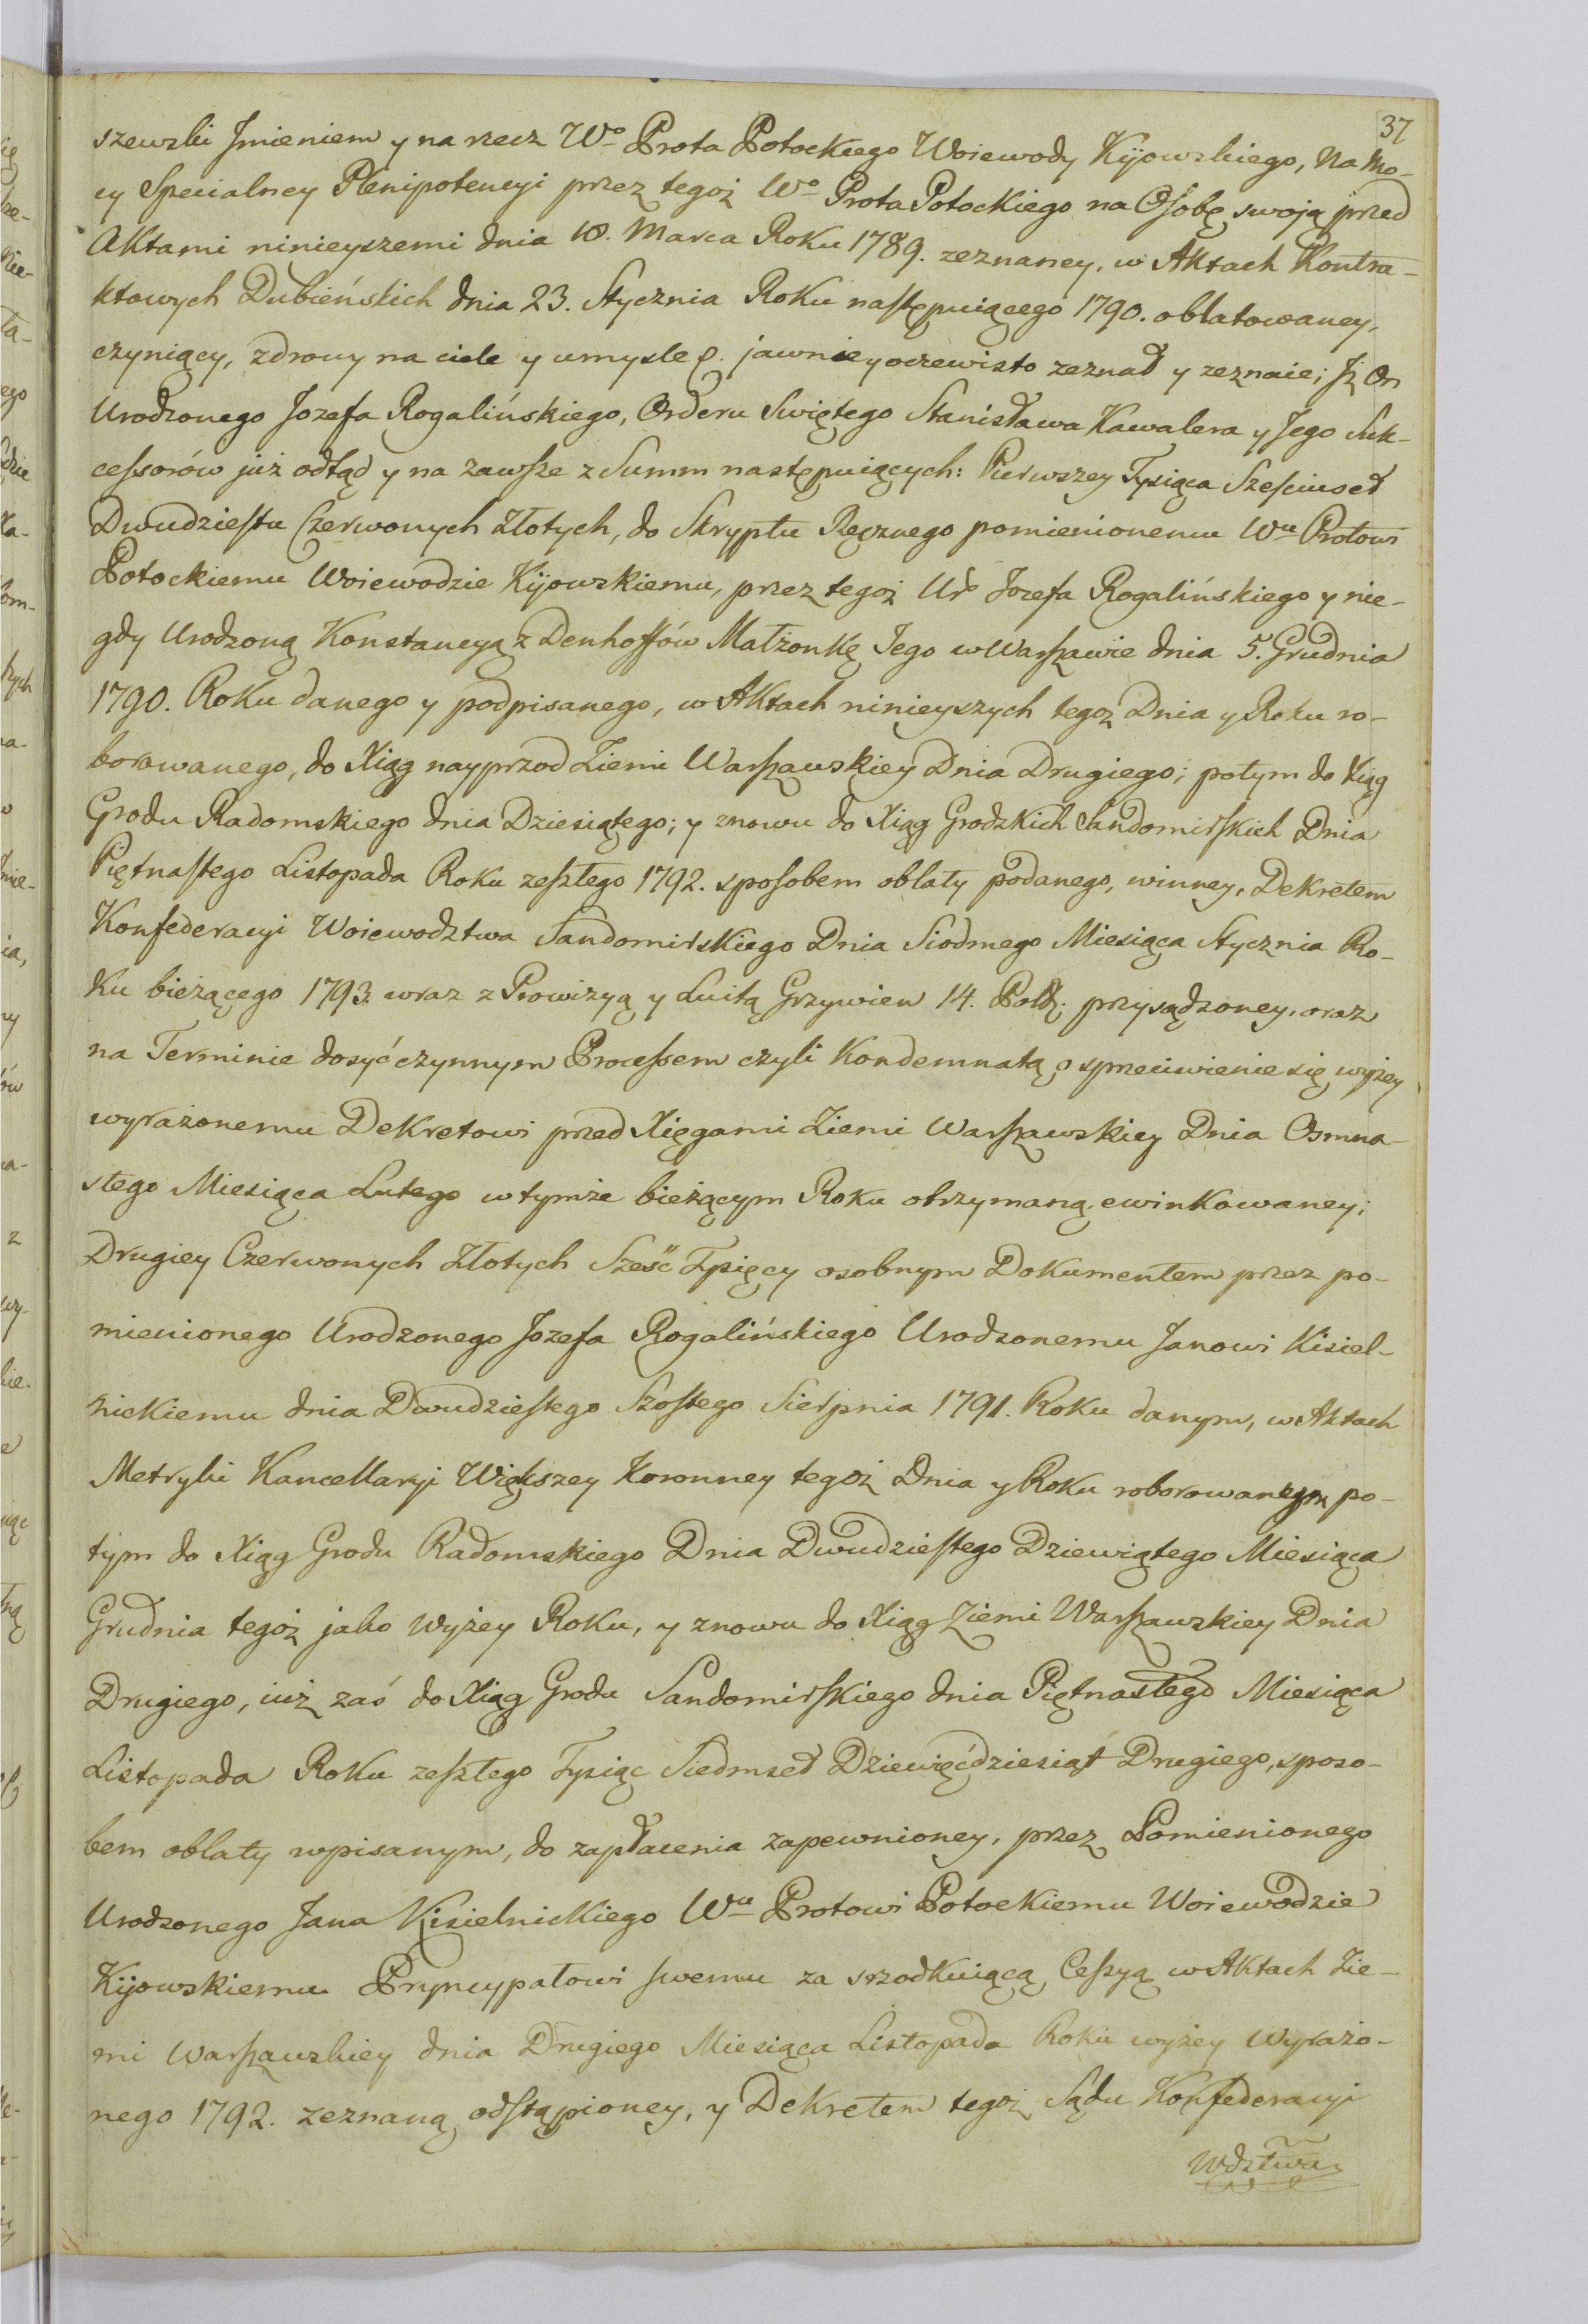 37
szewski Jmieniem y na rzecz Wo Prota Potockiego Woiewody Kijowskiego, Na Mo-
cy Specialney Plenipotencyi przez tegoż Wo Prota Potockiego na Osobę swoją przed
Aktami ninieyszemi dnia 18. Marca Roku 1789. zeznaney, w Aktach Kontra-
ktowych Dubieńskich dnia 23. Stycznia Roku następuiącego 1790. oblatowaney,
czyniący, zdrowy na ciele y umysle jawnie y oczewisto zeznał y zeznaie; Jż On
Urodzonego Jozefa Rogalińskiego, Orderu Swiętego Stanisława Kawalera y Jego Suk-
cessorów już odtąd y na zawsze z Summ następuiących: Pierwszey Tysiąca Sześciuset
Dwudziestu Czerwonych Złotych, do Skryptu Ręcznego pomienionemu Wu Protowi
Potockiemu Woiewodzie Kijowskiemu, przez tegoż Uro Jozefa Rogalińskiego y nie-
gdy Urodzoną Konstancyą z Denhoffów Małżonkę Jego w Warszawie dnia 5. Grudnia
1790. Roku danego y podpisanego, w Aktach ninieyszych tegoż Dnia y Roku ro-
borowanego, do Xiąg nayprzod Ziemi Warszawskiey Dnia Drugiego; potym do Xiąg
Grodu Radomskiego dnia Dziesiątego; y znowu do Xiąg Grodzkich Sandomirskich Dnia
Piętnastego Listopada Roku zeszłego 1792. sposobem oblaty podanego, winney, Dekretem
Konfederacyi Woiewodztwa Sandomirskiego Dnia Siódmego Miesiąca Stycznia Ro-
ku bieżącego 1793. wraz z Prowizyą y Luitą Grzywien 14. Polch. przysądzoney, oraz
na Terminie dosyć czynnym Processem czyli Kondemnatą o sprzeciwienie się wyżey
wyrażonemu Dekretowi przed Xięgami Ziemi Warszawskiey Dnia Osmna-
stego Miesiąca Lutego w tymże bieżącym Roku otrzymaną, ewinkowaney;
Drugiey Czerwonych Złotych Sześć Tysięcy osobnym Dokumentem przez po-
mienionego Urodzonego Jozefa Rogalińskiego Urodzonemu Janowi Kisiel-
nickiemu dnia Dwudziestego Szostego Sierpnia 1791. Roku danym, w Aktach
Metryki Kancellaryi Większey Koronney tegoż Dnia y Roku roborowanym, po-
tym do Xiąg Grodu Radomskiego Dnia Dwudziestego Dziewiątego Miesiąca
Grudnia tegoż jako wyżey Roku, y znowu do Xiąg Ziemi Warszawskiey Dnia
Drugiego, iuż zaś do Xiąg Grodu Sandomirskiego dnia Piętnastego Miesiąca
Listopada Roku zeszłego Tysiąc Siedmset Dziewięćdziesiąt Drugiego, sposo-
bem oblaty wpisanym, do zapłacenia zapewnioney, przez Pomienionego
Urodzonego Jana Kisielnickiego Wu Protowi Potockiemu Woiewodzie
Kijowskiemu Pryncypałowi swemu za srzodkuiącą Cessyą w Aktach Zie-
mi Warszawskiey dnia Drugiego Miesiąca Listopada Roku wyżey wyrażo-
nego 1792. zeznaną odstąpioney, y Dekretem tegoż Sądu Konfederacyi
Wdztwa